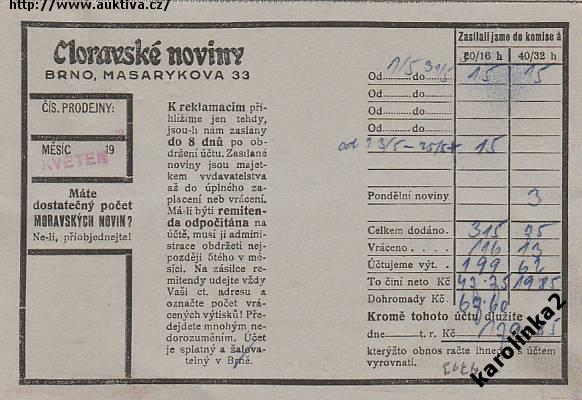 http://www.auktiva.cz/
Moravské noviny
BRNO, MASARYKOVA 33
ČÍS. PRODEJNY:
MĚSÍC 19
KVĚTEN
Máte
dostatečný počet
MORAVSKÝCH NOVIN?
Ne-li, přiobjednejte!
K reklamacím při-
hlížíme jen tehdy,
jsou-li nám zaslány
do 8 dnů po ob-
držení účtu. Zasílané
noviny jsou majet-
kem vydavatelstva
až do úplného za-
placení neb vrácení.
Má-li býti remiten-
da odpočítána na
účtě, musí ji admini-
strace obdržeti nej-
později 5tého v mě-
síci. Na zásilce re-
mitendy udejte vždy
Vaši ct. adresu a
označte počet vrá-
cených výtisků! Pře-
dejdete mnohým ne-
dorozuměním. Účet
je splatný a žalova-
telný v Brně.
Zasílali jsme do komise à
20/16 h 40/32 h
Od 1/5 do 31/5 15 15
Od do
Od do
Od do
od 23/5-25/5 15
Pondělní noviny 3
Celkem dodáno: 315 75
Vráceno 116 13
Účtujeme výt. 199 62
To činí neto Kč 47.75 19.85
Dohromady Kč 67.60
Kromě tohoto účtu dlužíte
dne t. r. Kč
kterýžto obnos račte ihned s účtem
vyrovnati.
karolinka2